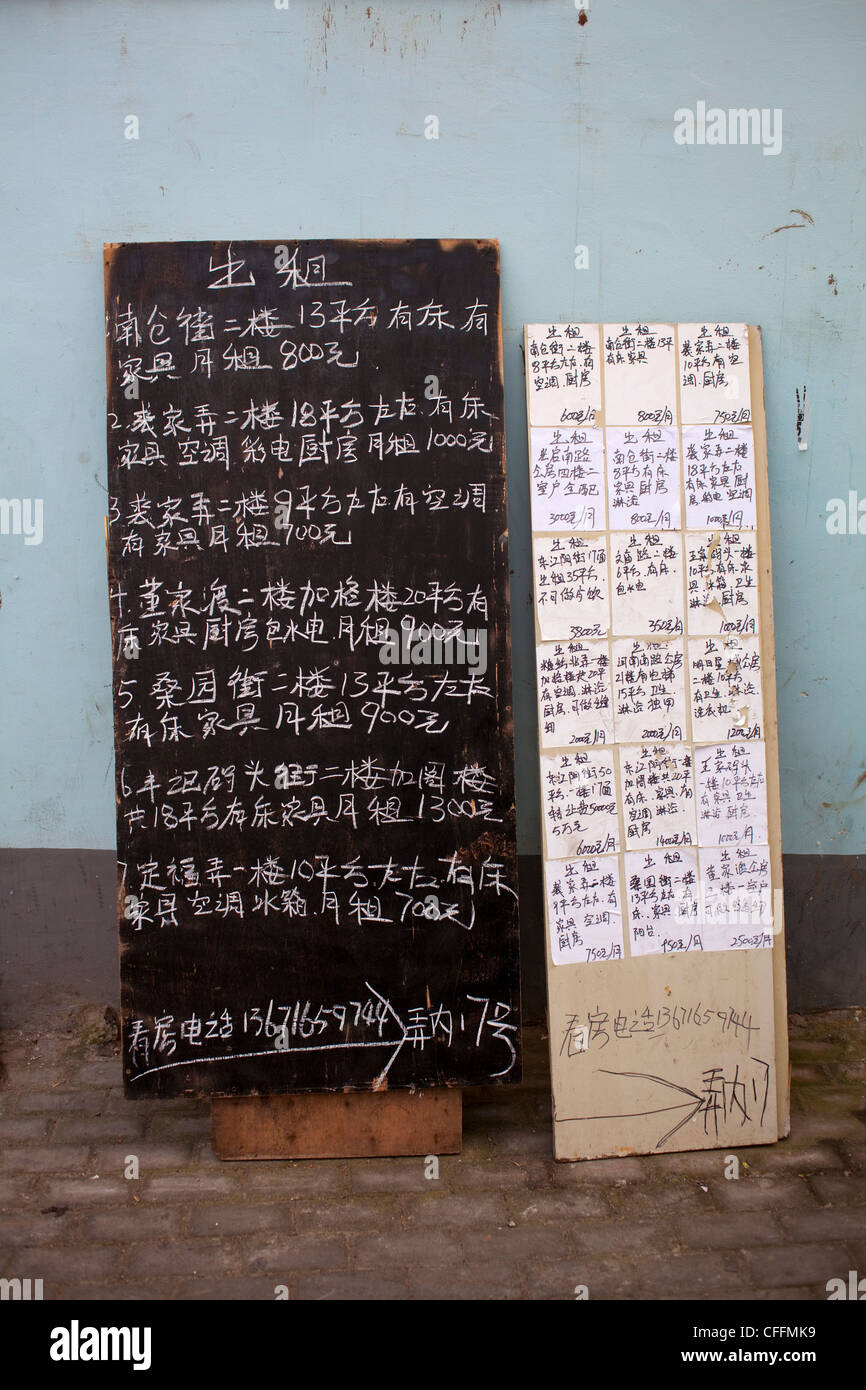 出租
南仓街二楼13平方有床.有
家具月租800元
2.裘家弄二楼18平方左右.有床
家具空调彩电厨房月租1000元
3.裘家弄二楼9平方左右有空调
有家具月租700元
4.董家渡二楼加阁楼20平方有
床家具厨房包水电.月租900元
5.桑园街二楼13平方左右
有床家具月租900元
码头街二楼加阁楼
共18平方有床家具月租1300元
7.定福弄一楼10平方.左右.有床
家具空调冰箱.月租700元
看房电话13671659744
弄内17号
出租
南仓街二楼
8平方左右.有
空调.厨房
600元/月
出租
南仓街二楼13平
有床家具
800元/月
出租
裘家弄二楼
10平方有空
调.厨房
750元/月
出租
南路
公房四楼二
室户
3000元/月
出租
南仓街二楼
8平方有床
家具厨房
淋浴
800元/月
出租
裘家弄二楼
18平方左右
有床家具厨
房.彩电空调
1000元/月
出租
东江阴街17面
出租35平方.
不可做餐饮
3800元/月
出租
路二楼
6平方.有床.
包水电
350元/月
出租
码头一楼
10平方.有床.家
具冰箱.卫生
淋浴厨房
1000元/月
出租
弄一楼
加阁楼共20平
有空调.淋浴
厨房.可做缝纫
2000元/月
出租
河南南路公房
2楼电梯
15平方.卫生
淋浴独用
2000元/月
出租
公房
二楼10平方
有卫生.淋浴.
洗衣机
1200元/月
出租
东江阴街50
平方.一楼17面
转让费50000元
5万元
6000元/月
出租
东江阴街一楼
加阁楼共20平
有床.家具.有
空调.淋浴
厨房
1400元/月
出租
王家码头
一楼10平方左右
有家具卫生
淋浴厨房
1000元/月
出租
裘家弄二楼
9平方左右.有
家具空调.
厨房
750元/月
出租
桑园街二楼
13平方左右有
床.家具厨房
阳台.
950元/月
出租
董家渡公房
一楼一室户
2500元/月
看房电话13671659744
弄内17
alamy
CFFMK9
www.alamy.com